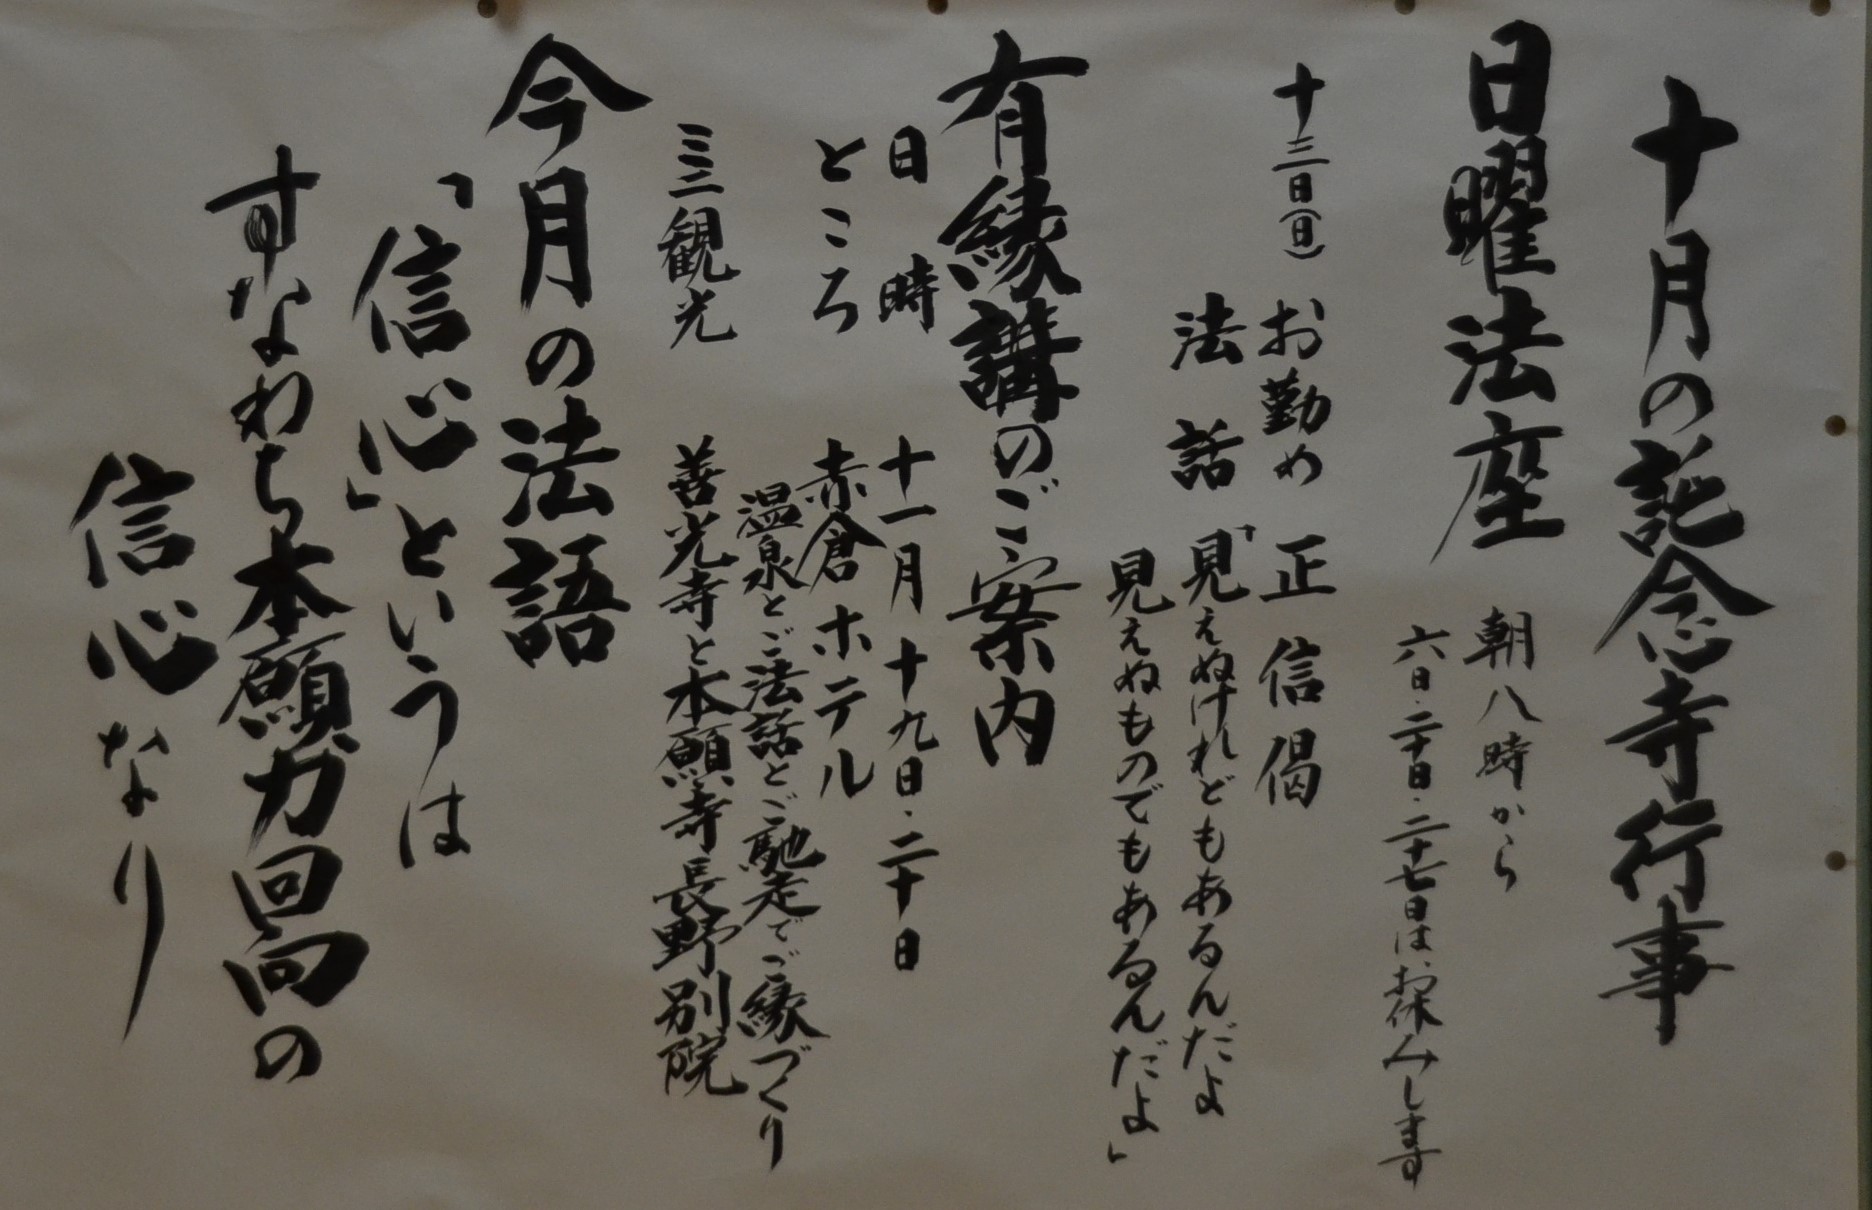 十月の託念寺行事
日曜法座
朝八時から
六日・二十日・二十七日は、お休みします
十三日(日) お勤め 正信偈
法話 「見えぬけれどもあるんだよ
見えぬものでもあるんだよ」
有縁講のご案内
日時 十一月十九日・二十日
ところ 赤倉ホテル
温泉とご法話とご馳走でご縁づくり
ミニ観光 善光寺と本願寺長野別院
今月の法語
「信心」というは
すなわち本願力回向の
信心なり